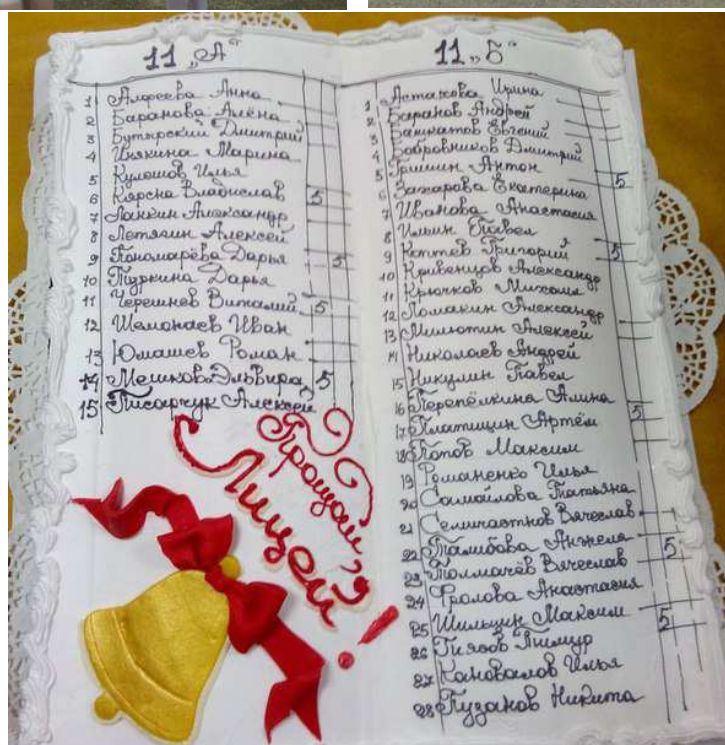 11 „А"
1 Алфеева Анна
2 Баранова Алёна
3 Бутырский Дмитрий
4 Инякина Марина
5 Кулешов Илья
6 Владислав 5
7 Ланкин Александр
8 Летягин Алексей
9 Пономарёва Дарья 5
10 Туркина Дарья
11 Черешнев Виталий 5
12 Иван
13 Юмашев Роман
14 Мешков Эльвира 5
15 Писарчук Алексей
Прощай
Лицей!
11 „Б"
1 Астахова Ирина
2 Баранов Андрей
3 Башкатов Евгений
4 Бобровников Дмитрий
5 Гришин Антон 5
6 Захарова Екатерина
7 Иванова Анастасия
8 Ильин Павел
9 Коттев Григорий 5
10 Кривенцов Александр
11 Крючков Михаил
12 Ломакин Александр
13 Милютин Алексей
14 Николаев Андрей
15 Никулин Павел
16 Перепёлкина Алина
17 Платицин Артём 5
18 Попов Максим
19 Романенко Илья
20 Самойлова Татьяна
21 Селичастнов Вячеслав
22 Талибова Анжела 5
23 Толмачёв Вячеслав
24 Фролова Анастасия
25 Шильцин Максим 5
26 Тимур
27 Кановалов Илья
28 Пузанов Никита